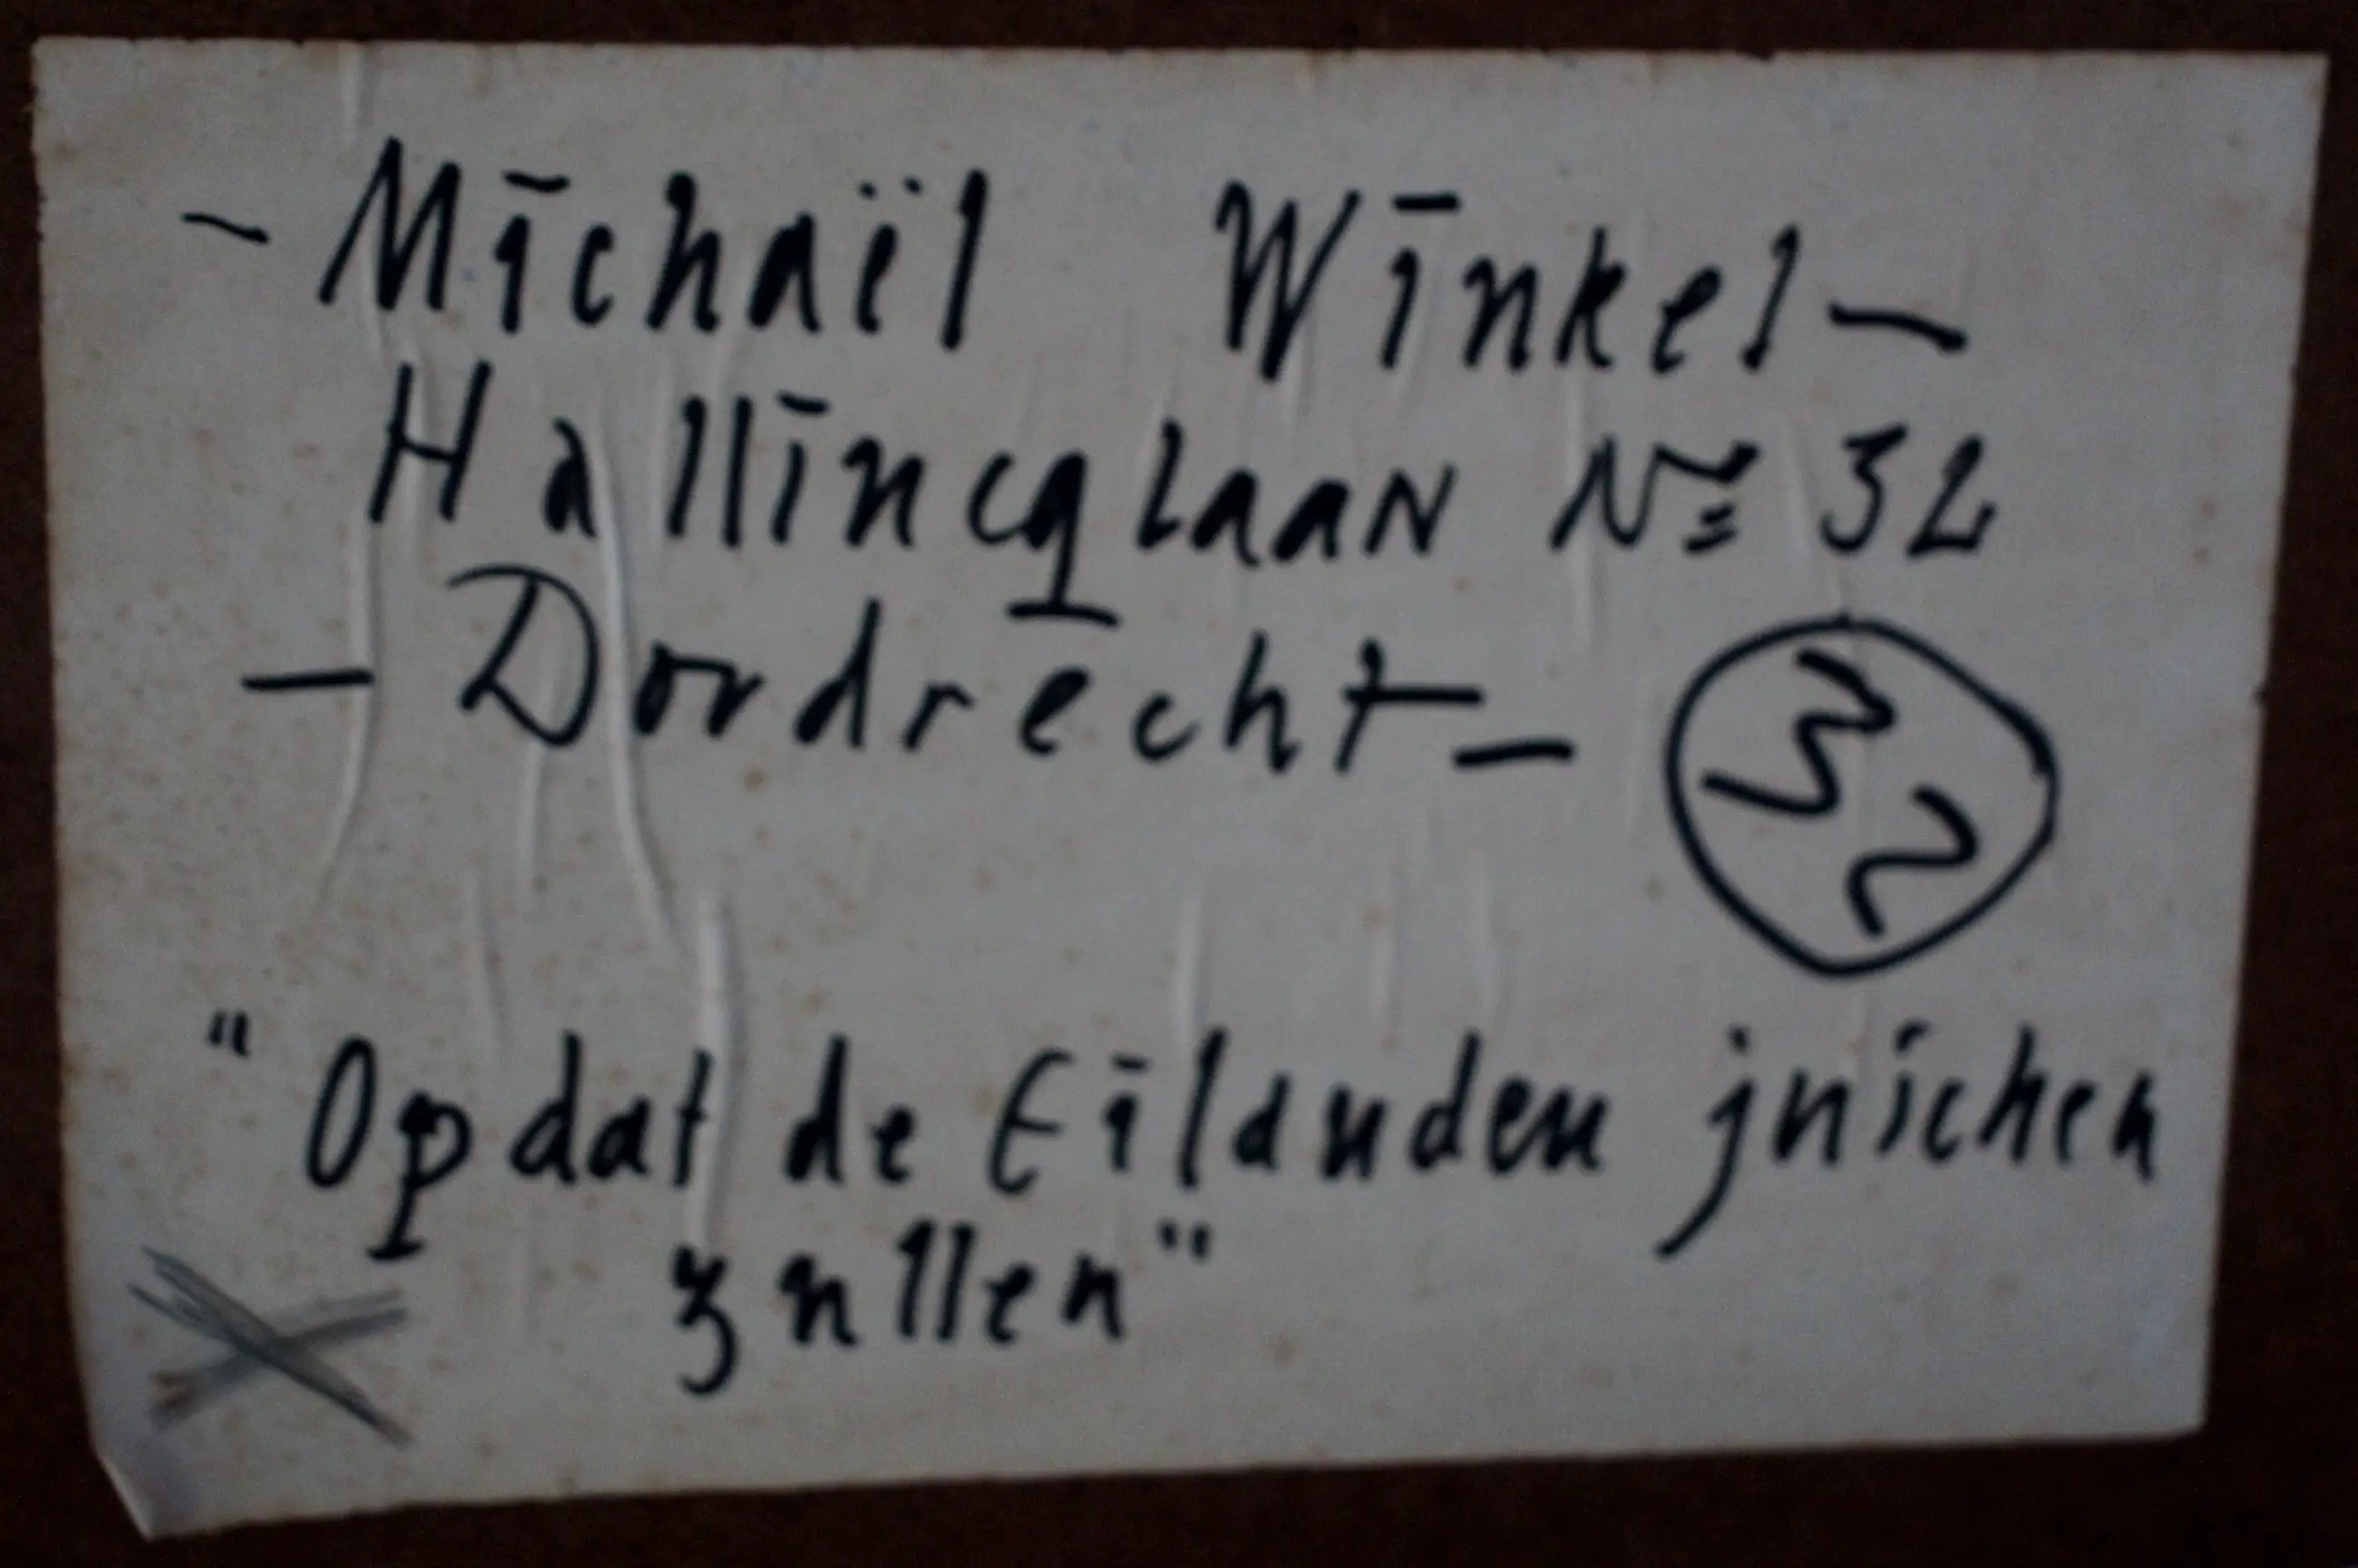 - Michaël Winkel -
Hallincqlaan Nº 32
- Dordrecht -
32
"Opdat de Eilanden juichen
zullen"